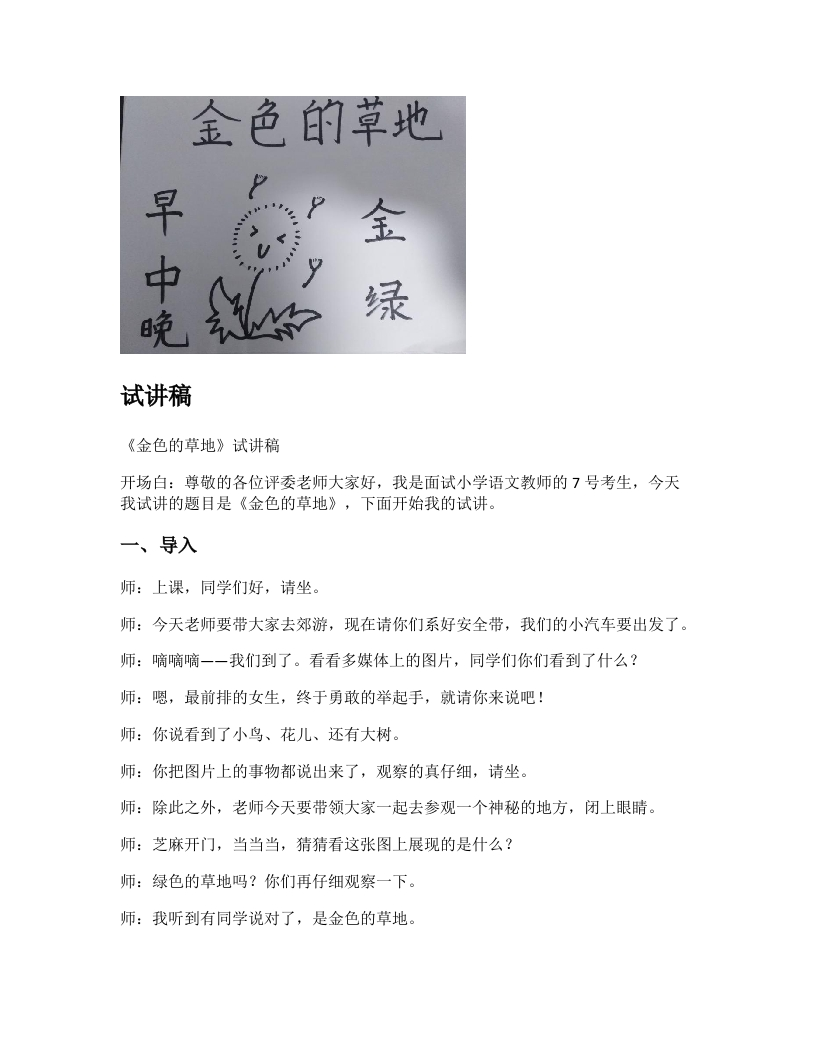 金色的草地
早
金
中
绿
晚
试讲稿
《金色的草地》试讲稿
开场白：尊敬的各位评委老师大家好，我是面试小学语文教师的 7 号考生，今天
我试讲的题目是《金色的草地》，下面开始我的试讲。
一、导入
师：上课，同学们好，请坐。
师：今天老师要带大家去郊游，现在请你们系好安全带，我们的小汽车要出发了。
师：嘀嘀嘀——我们到了。看看多媒体上的图片，同学们你们看到了什么？
师：嗯，最前排的女生，终于勇敢的举起手，就请你来说吧！
师：你说看到了小鸟、花儿、还有大树。
师：你把图片上的事物都说出来了，观察的真仔细，请坐。
师：除此之外，老师今天要带领大家一起去参观一个神秘的地方，闭上眼睛。
师：芝麻开门，当当当，猜猜看这张图上展现的是什么？
师：绿色的草地吗？你们再仔细观察一下。
师：我听到有同学说对了，是金色的草地。